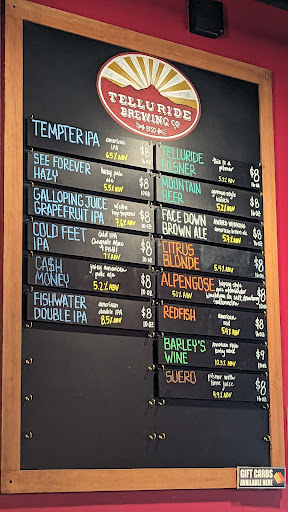 TELLURIDE
BREWING CO
8750
TEMPTER IPA
american
IPA
6.5% ABV
$8
16 OZ
SEE FOREVER
HAZY
hazy pale
ale
5.5% ABV
$8
16 OZ
GALLOPING JUICE
GRAPEFRUIT IPA
7.6% ABV
$8
COLD FEET
IPA
Cold IPA
7% ABV
$8
16 OZ
CA$H
MONEY
juicy american
pale ale
5.2% ABV
$8
16 OZ
FISHWATER
DOUBLE IPA
american
double IPA
8.5% ABV
$8
16 OZ
TELLURIDE
PILSNER
this is a
pilsner
$8
16 OZ
MOUNTAIN
BEER
german style
$8
16 OZ
FACE DOWN
BROWN ALE
AWARD WINNING
5.7% ABV
$8
CITRUS
BLONDE
5.4% ABV
$8
16 OZ
ALPENGOSE
$8
REDFISH
american
red
5.9% ABV
$8
16 OZ
BARLEY'S
WINE
American style
barley wine
$9
10 OZ
SUERO
pilsner with
lime juice
4.9% ABV
$8
16 OZ
GIFT CARDS
AVAILABLE HERE